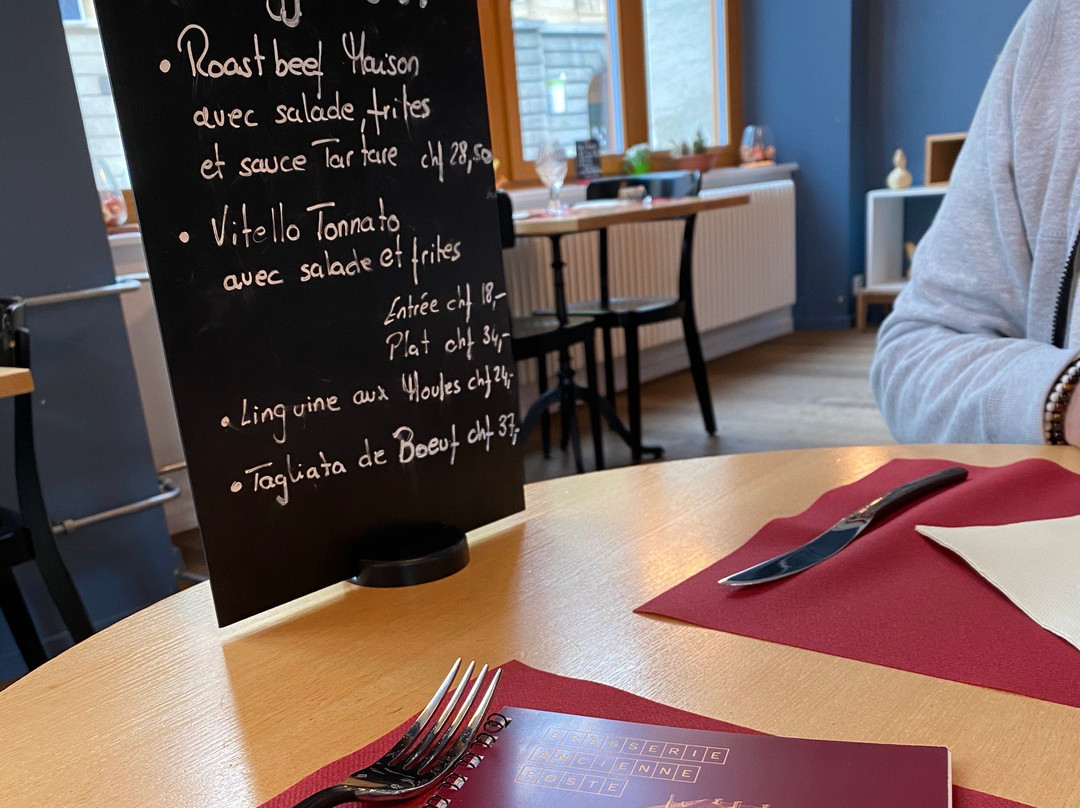 • Roast beef Maison
avec salade, frites
et sauce Tartare chf 28,50
• Vitello Tonnato
avec salade et frites
Entrée chf 18,-
Plat chf 34,-
• Linguine aux Moules chf 24,-
• Tagliata de Boeuf chf 37,-
BRASSERIE
ANCIENNE
POSTE